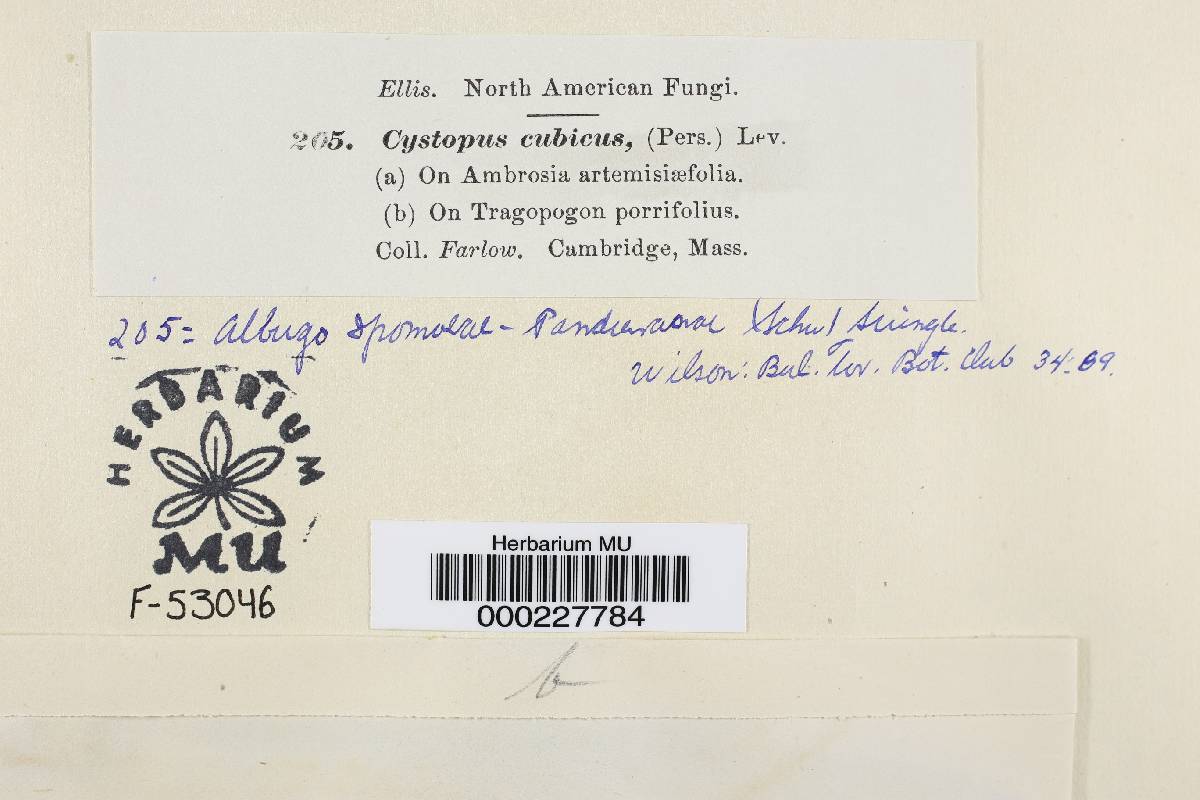 Ellis. North American Fungi.
205. Cystopus cubicus, (Pers.) Lev.
(a) On Ambrosia artemisiæfolia.
(b) On Tragopogon porrifolius.
Coll. Farlow. Cambridge, Mass.
205 = Albugo Ipomoeae - Panduranae (Schw) Swingle.
Wilson: Bul. Tor. Bot. Club 34: 69.
HERBARIUM
MU
F-53046
Herbarium MU
000227784
b